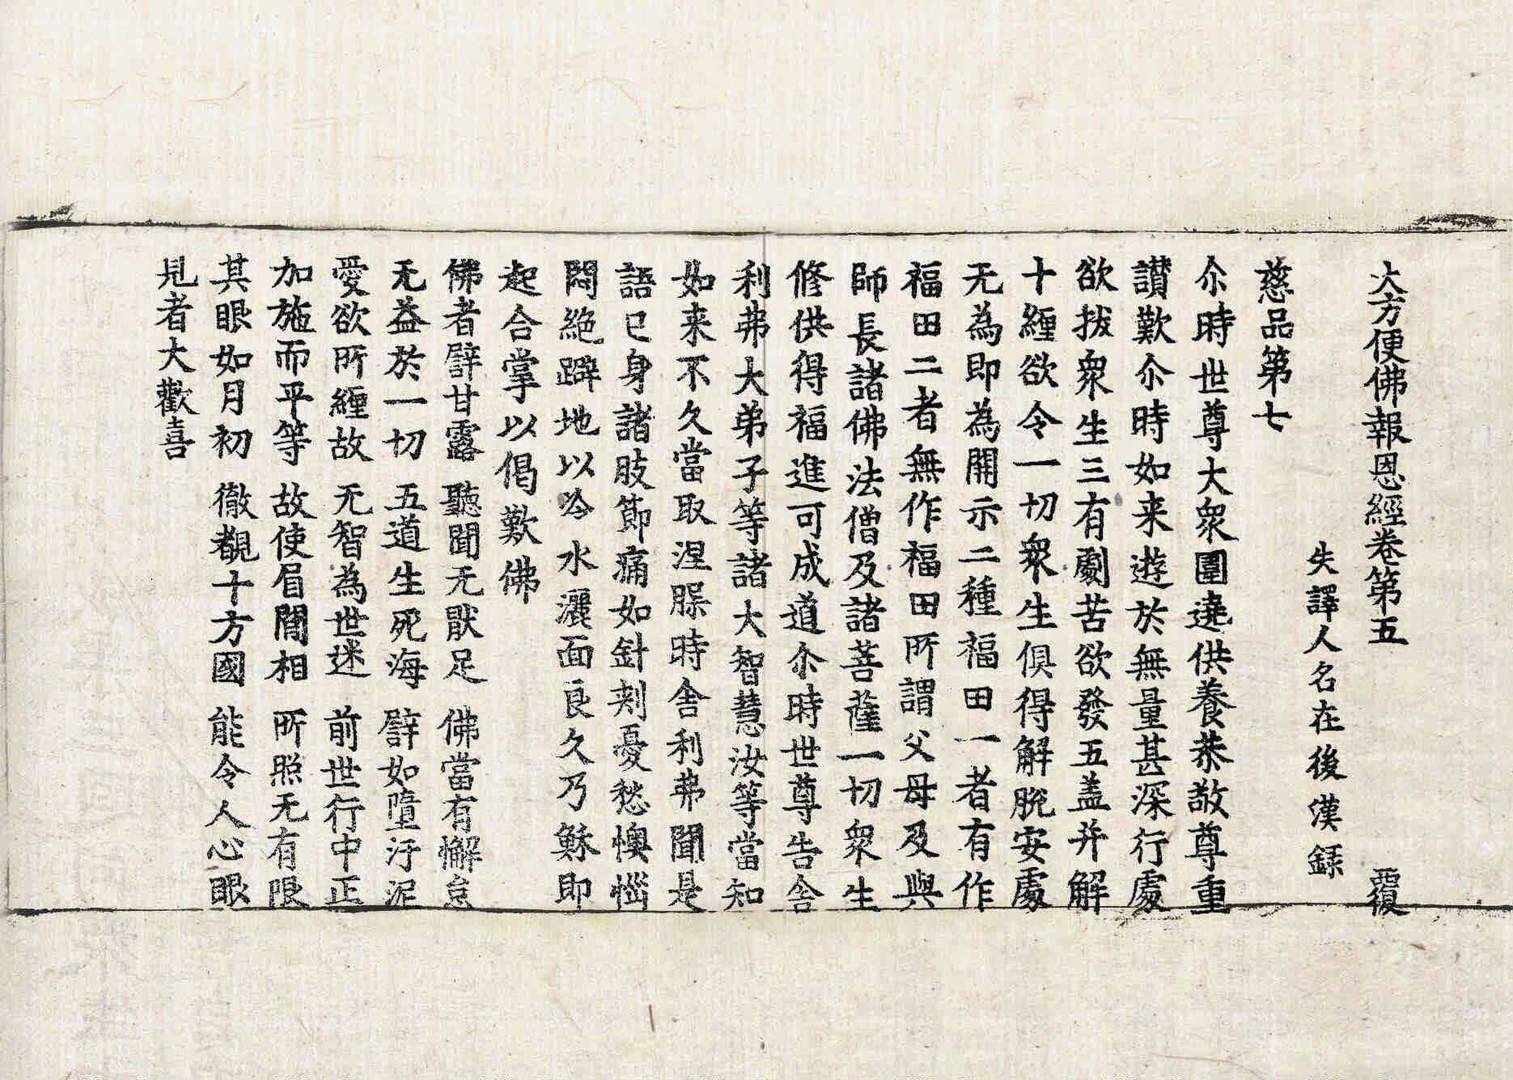 大方便佛報恩經卷第五　覆
失譯人名在後漢録
慈品第七
尒時世尊大衆圍遶供養恭敬尊重
讃歎尒時如来遊於無量甚深行處
欲拔衆生三有劇苦欲發五盖并解
十纏欲令一切衆生俱得解脫安處
无為即為開示二種福田一者有作
福田二者無作福田所謂父母及與
師長諸佛法僧及諸菩薩一切衆生
修供得福進可成道尒時世尊告舍
利弗大弟子等諸大智慧汝等當知
如来不久當取涅槃時舎利弗聞是
語已身諸肢節痛如針刾憂愁懊惱
悶絶躃地以冷水灑面良久乃穌即
起合掌以偈歎佛
佛者譬甘露　聽聞无猒足　佛當有懈怠
无益於一切　五道生死海　譬如墮汙泥
愛欲所纏故　无智為世迷　前世行中正
加施而平等　故使眉間相　所照无有限
其眼如月初　徹覩十方國　能令人心眼
見者大歡喜